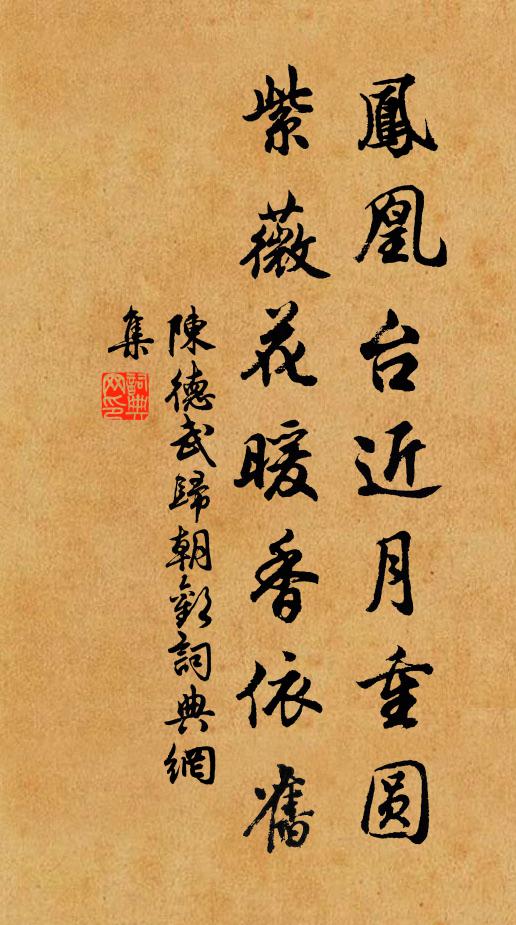 鳳凰台近月重圓
紫薇花暖香依舊
陳德武歸朝歡詞典網
集
詞典網印